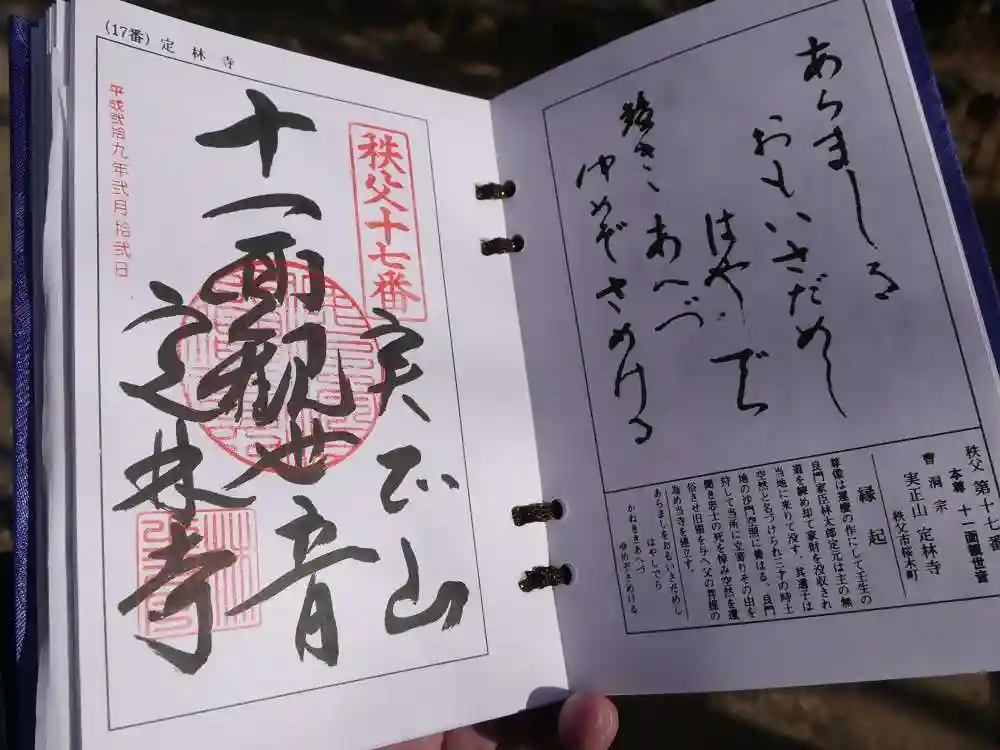 (17番) 定林寺
平成弐拾九年弐月拾弐日
秩父十七番
実正山
十一面観世音
定林寺
あらましを
おもいさだめし
はやしでら
鐘きゝあへづ
ゆめぞさめける
秩父 第十七番
本尊 十一面観世音
曹洞宗
実正山 定林寺
秩父市桜木町
縁起
尊像は運慶の作にして壬生の
良門家臣林太郎定元は主の無
道を諌め却て家財を没収され
当地に来りて没す、其遺子は
空然と名づけられ三才の時土
地の沙門空照に養はる、良門
狩して当所に立寄りその由を
聞き忠士の死を悼み空然を還
俗させ旧領を与へ父の菩提の
為め当寺を建立す。
あらましをおもいさだめし
はやしでら
かねききあへづ
ゆめぞさめける